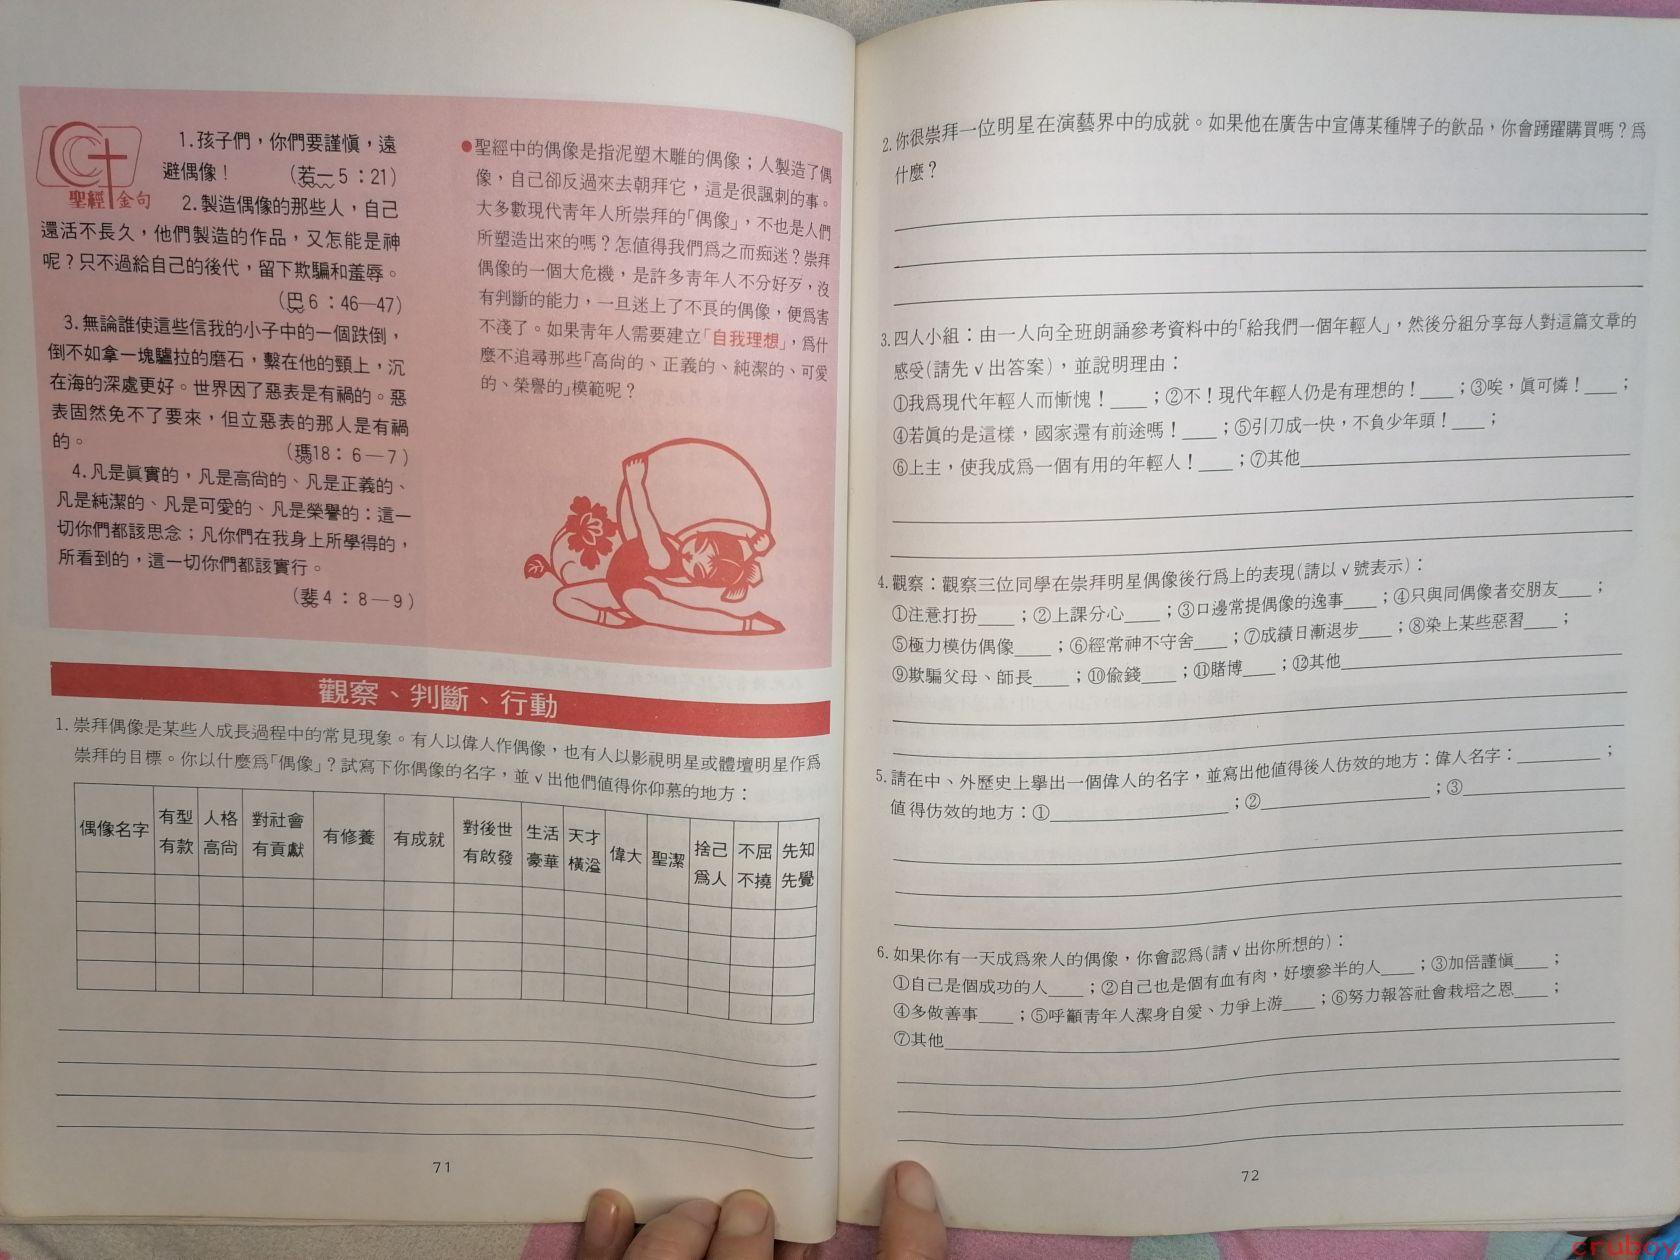 聖經金句
1.孩子們，你們要謹慎，遠
避偶像！　（若一5：21）
2.製造偶像的那些人，自己
還活不長久，他們製造的作品，又怎能是神
呢？只不過給自己的後代，留下欺騙和羞辱。
（巴6：46—47）
3.無論誰使這些信我的小子中的一個跌倒，
倒不如拿一塊驢拉的磨石，繫在他的頸上，沉
在海的深處更好。世界因了惡表是有禍的。惡
表固然免不了要來，但立惡表的那人是有禍
的。　（瑪18：6—7）
4.凡是眞實的，凡是高尙的、凡是正義的、
凡是純潔的、凡是可愛的、凡是榮譽的：這一
切你們都該思念；凡你們在我身上所學得的，
所看到的，這一切你們都該實行。
（斐4：8—9）
●聖經中的偶像是指泥塑木雕的偶像；人製造了偶
像，自己卻反過來去朝拜它，這是很諷刺的事。
大多數現代靑年人所崇拜的「偶像」，不也是人們
所塑造出來的嗎？怎値得我們爲之而痴迷？崇拜
偶像的一個大危機，是許多靑年人不分好歹，沒
有判斷的能力，一旦迷上了不良的偶像，便爲害
不淺了。如果靑年人需要建立「自我理想」，爲什
麼不追尋那些「高尙的、正義的、純潔的、可愛
的、榮譽的」模範呢？
觀察、判斷、行動
1.崇拜偶像是某些人成長過程中的常見現象。有人以偉人作偶像，也有人以影視明星或體壇明星作爲
崇拜的目標。你以什麼爲「偶像」？試寫下你偶像的名字，並√出他們値得你仰慕的地方：
偶像名字 有型有款 人格高尙 對社會有貢獻 有修養 有成就 對後世有啟發 生活豪華 天才橫溢 偉大 聖潔 捨己爲人 不屈不撓 先知先覺
71
2.你很崇拜一位明星在演藝界中的成就。如果他在廣告中宣傳某種牌子的飲品，你會踴躍購買嗎？爲
什麼？
3.四人小組：由一人向全班朗誦參考資料中的「給我們一個年輕人」，然後分組分享每人對這篇文章的
感受(請先√出答案)，並說明理由：
①我爲現代年輕人而慚愧！____；②不！現代年輕人仍是有理想的！____；③唉，眞可憐！____；
④若眞的是這樣，國家還有前途嗎！____；⑤引刀成一快，不負少年頭！____；
⑥上主，使我成爲一個有用的年輕人！____；⑦其他____
4.觀察：觀察三位同學在崇拜明星偶像後行爲上的表現(請以√號表示)：
①注意打扮____；②上課分心____；③口邊常提偶像的逸事____；④只與同偶像者交朋友____；
⑤極力模仿偶像____；⑥經常神不守舍____；⑦成績日漸退步____；⑧染上某些惡習____；
⑨欺騙父母、師長____；⑩偸錢____；⑪賭博____；⑫其他____
5.請在中、外歷史上擧出一個偉人的名字，並寫出他値得後人仿效的地方：偉人名字：____；
値得仿效的地方：①____；②____；③____
6.如果你有一天成爲衆人的偶像，你會認爲(請√出你所想的)：
①自己是個成功的人____；②自己也是個有血有肉，好壞參半的人____；③加倍謹愼____；
④多做善事____；⑤呼籲靑年人潔身自愛、力爭上游____；⑥努力報答社會栽培之恩____；
⑦其他____
72
cruboy